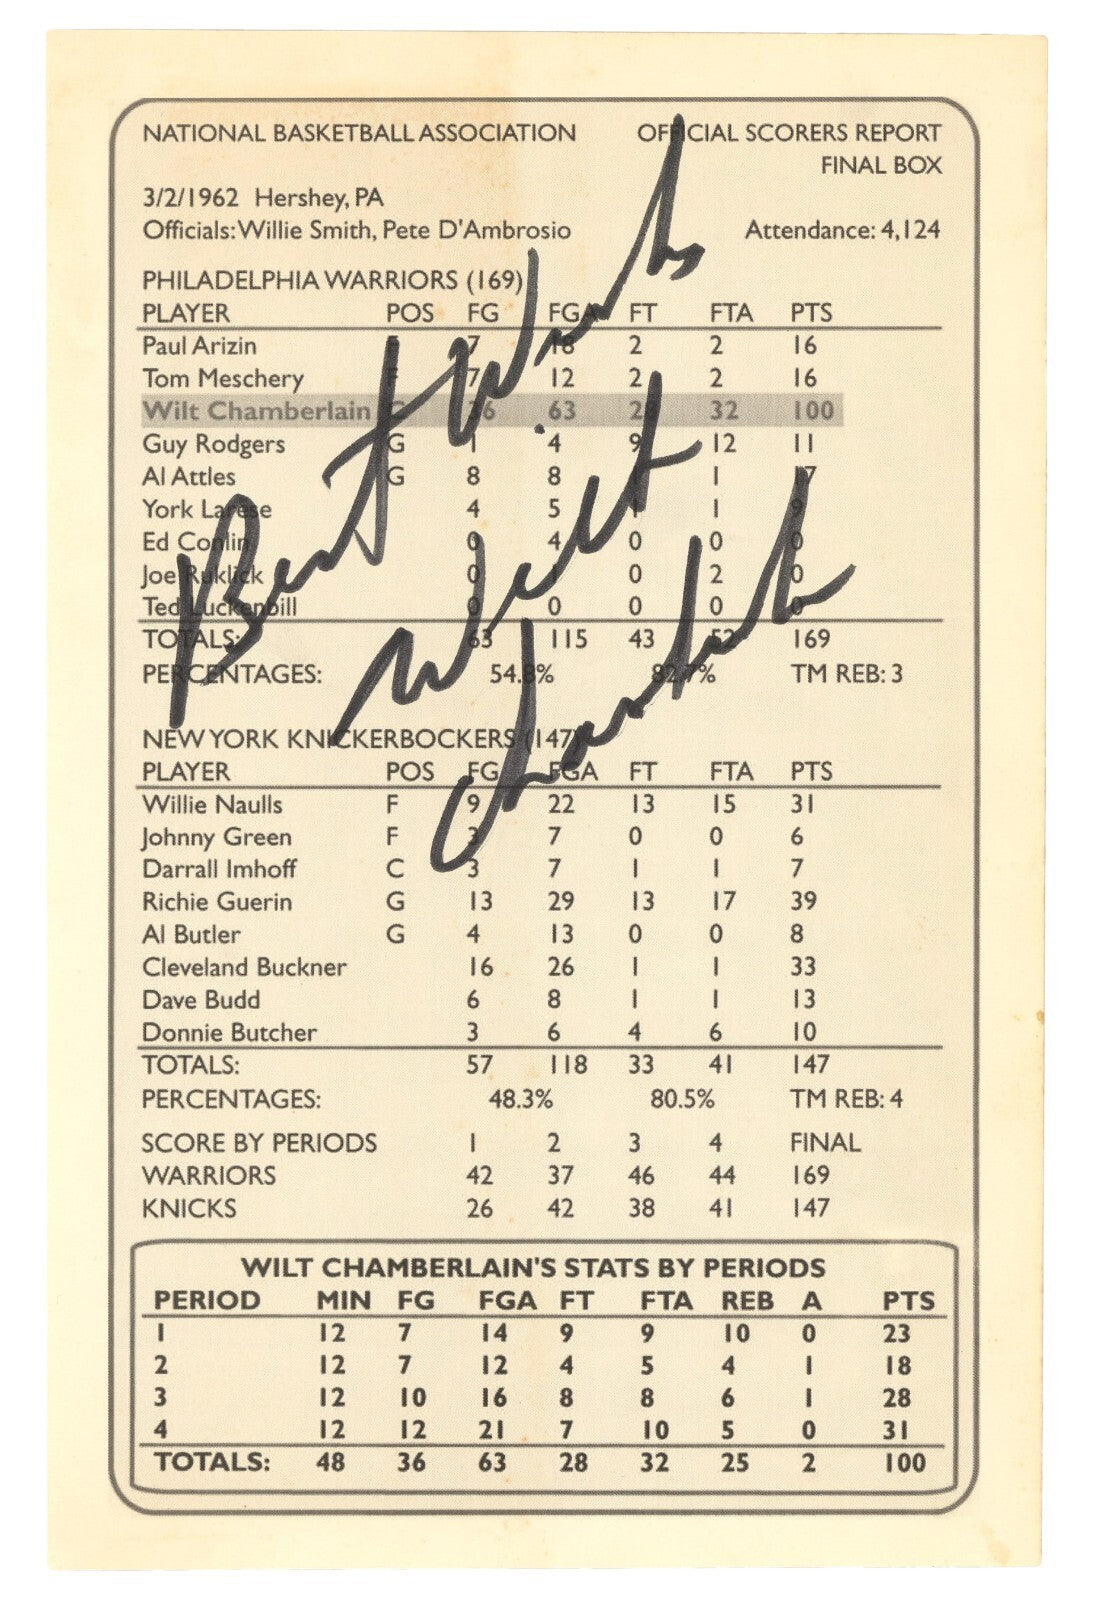 NATIONAL BASKETBALL ASSOCIATION OFFICIAL SCORERS REPORT
FINAL BOX
3/2/1962 Hershey, PA
Officials: Willie Smith, Pete D'Ambrosio Attendance: 4,124
PHILADELPHIA WARRIORS (169)
PLAYER POS FG FGA FT FTA PTS
Paul Arizin F 7 18 2 2 16
Tom Meschery F 7 12 2 2 16
Wilt Chamberlain C 36 63 28 32 100
Guy Rodgers G 1 4 9 12 11
Al Attles G 8 8 1 1 17
York Larese 4 5 1 1 9
Ed Conlin 0 4 0 0 0
Joe Ruklick 0 1 0 2 0
Ted Luckenbill 0 0 0 0 0
TOTALS: 63 115 43 52 169
PERCENTAGES: 54.8% 82.7% TM REB: 3
Best Wishes
Wilt
Chamberlain
NEW YORK KNICKERBOCKERS (147)
PLAYER POS FG FGA FT FTA PTS
Willie Naulls F 9 22 13 15 31
Johnny Green F 3 7 0 0 6
Darrall Imhoff C 3 7 1 1 7
Richie Guerin G 13 29 13 17 39
Al Butler G 4 13 0 0 8
Cleveland Buckner 16 26 1 1 33
Dave Budd 6 8 1 1 13
Donnie Butcher 3 6 4 6 10
TOTALS: 57 118 33 41 147
PERCENTAGES: 48.3% 80.5% TM REB: 4
SCORE BY PERIODS 1 2 3 4 FINAL
WARRIORS 42 37 46 44 169
KNICKS 26 42 38 41 147
WILT CHAMBERLAIN'S STATS BY PERIODS
PERIOD MIN FG FGA FT FTA REB A PTS
1 12 7 14 9 9 10 0 23
2 12 7 12 4 5 4 1 18
3 12 10 16 8 8 6 1 28
4 12 12 21 7 10 5 0 31
TOTALS: 48 36 63 28 32 25 2 100